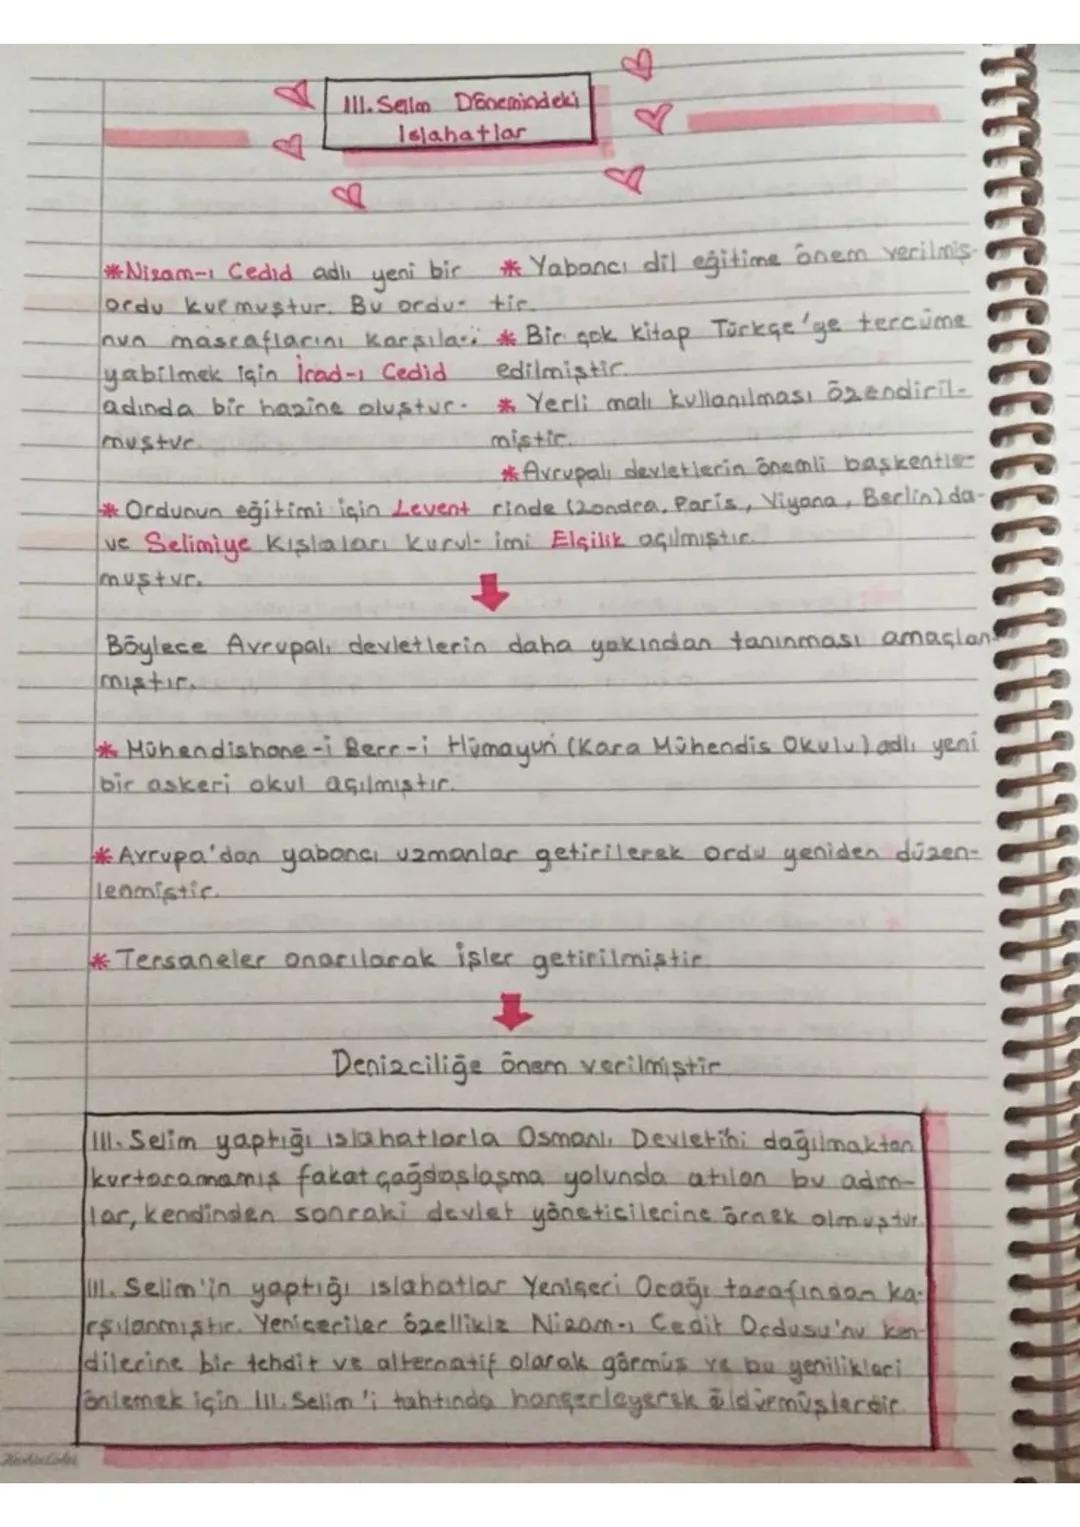 III. Selim Dönemindeki
Islahatlar
*Nizam-ı Cedid adlı yeni bir
ordu kurmuştur. Bu ordu-
nun masraflarını karşıla-
yabilmek için İrad-ı Cedid
adında bir hazine oluştur-
muştur.
* Ordunun eğitimi için Levent
ve Selimiye Kışlaları kurul-
muştur.
* Yabancı dil eğitime önem verilmiş-
tir.
* Bir çok kitap Türkçe'ye tercüme
edilmiştir.
* Yerli malı kullanılması özendiril-
miştir.
* Avrupalı devletlerin önemli başkentle-
rinde (Londra, Paris, Viyana, Berlin) da-
imi Elçilik açılmıştır.
Böylece Avrupalı devletlerin daha yakından tanınması amaçlan-
mıştır.
* Mühendishane-i Berr-i Hümayun (Kara Mühendis Okulu) adlı yeni
bir askeri okul açılmıştır.
* Avrupa'dan yabancı uzmanlar getirilerek ordu yeniden düzen-
lenmiştir.
* Tersaneler onarılarak işler getirilmiştir.
Denizciliğe önem verilmiştir
III. Selim yaptığı ıslahatlarla Osmanlı Devletini dağılmaktan
kurtaramamış fakat çağdaşlaşma yolunda atılan bu adım-
lar, kendinden sonraki devlet yöneticilerine örnek olmuştur.
III. Selim'in yaptığı ıslahatlar Yeniçeri Ocağı tarafından ka-
rşılanmıştır. Yeniçeriler özellikle Nizam-ı Cedit Ordusu'nu ken-
dilerine bir tehdit ve alternatif olarak görmüş ve bu yenilikleri
önlemek için III. Selim'i tahtında hançerleyerek öldürmüşlerdir.